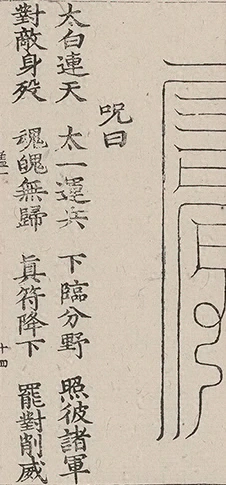 呪曰
太白連天 太一運兵 下臨分野 照彼諸軍
對敵身歿 魂魄無歸 眞符降下 罷對削威
十四